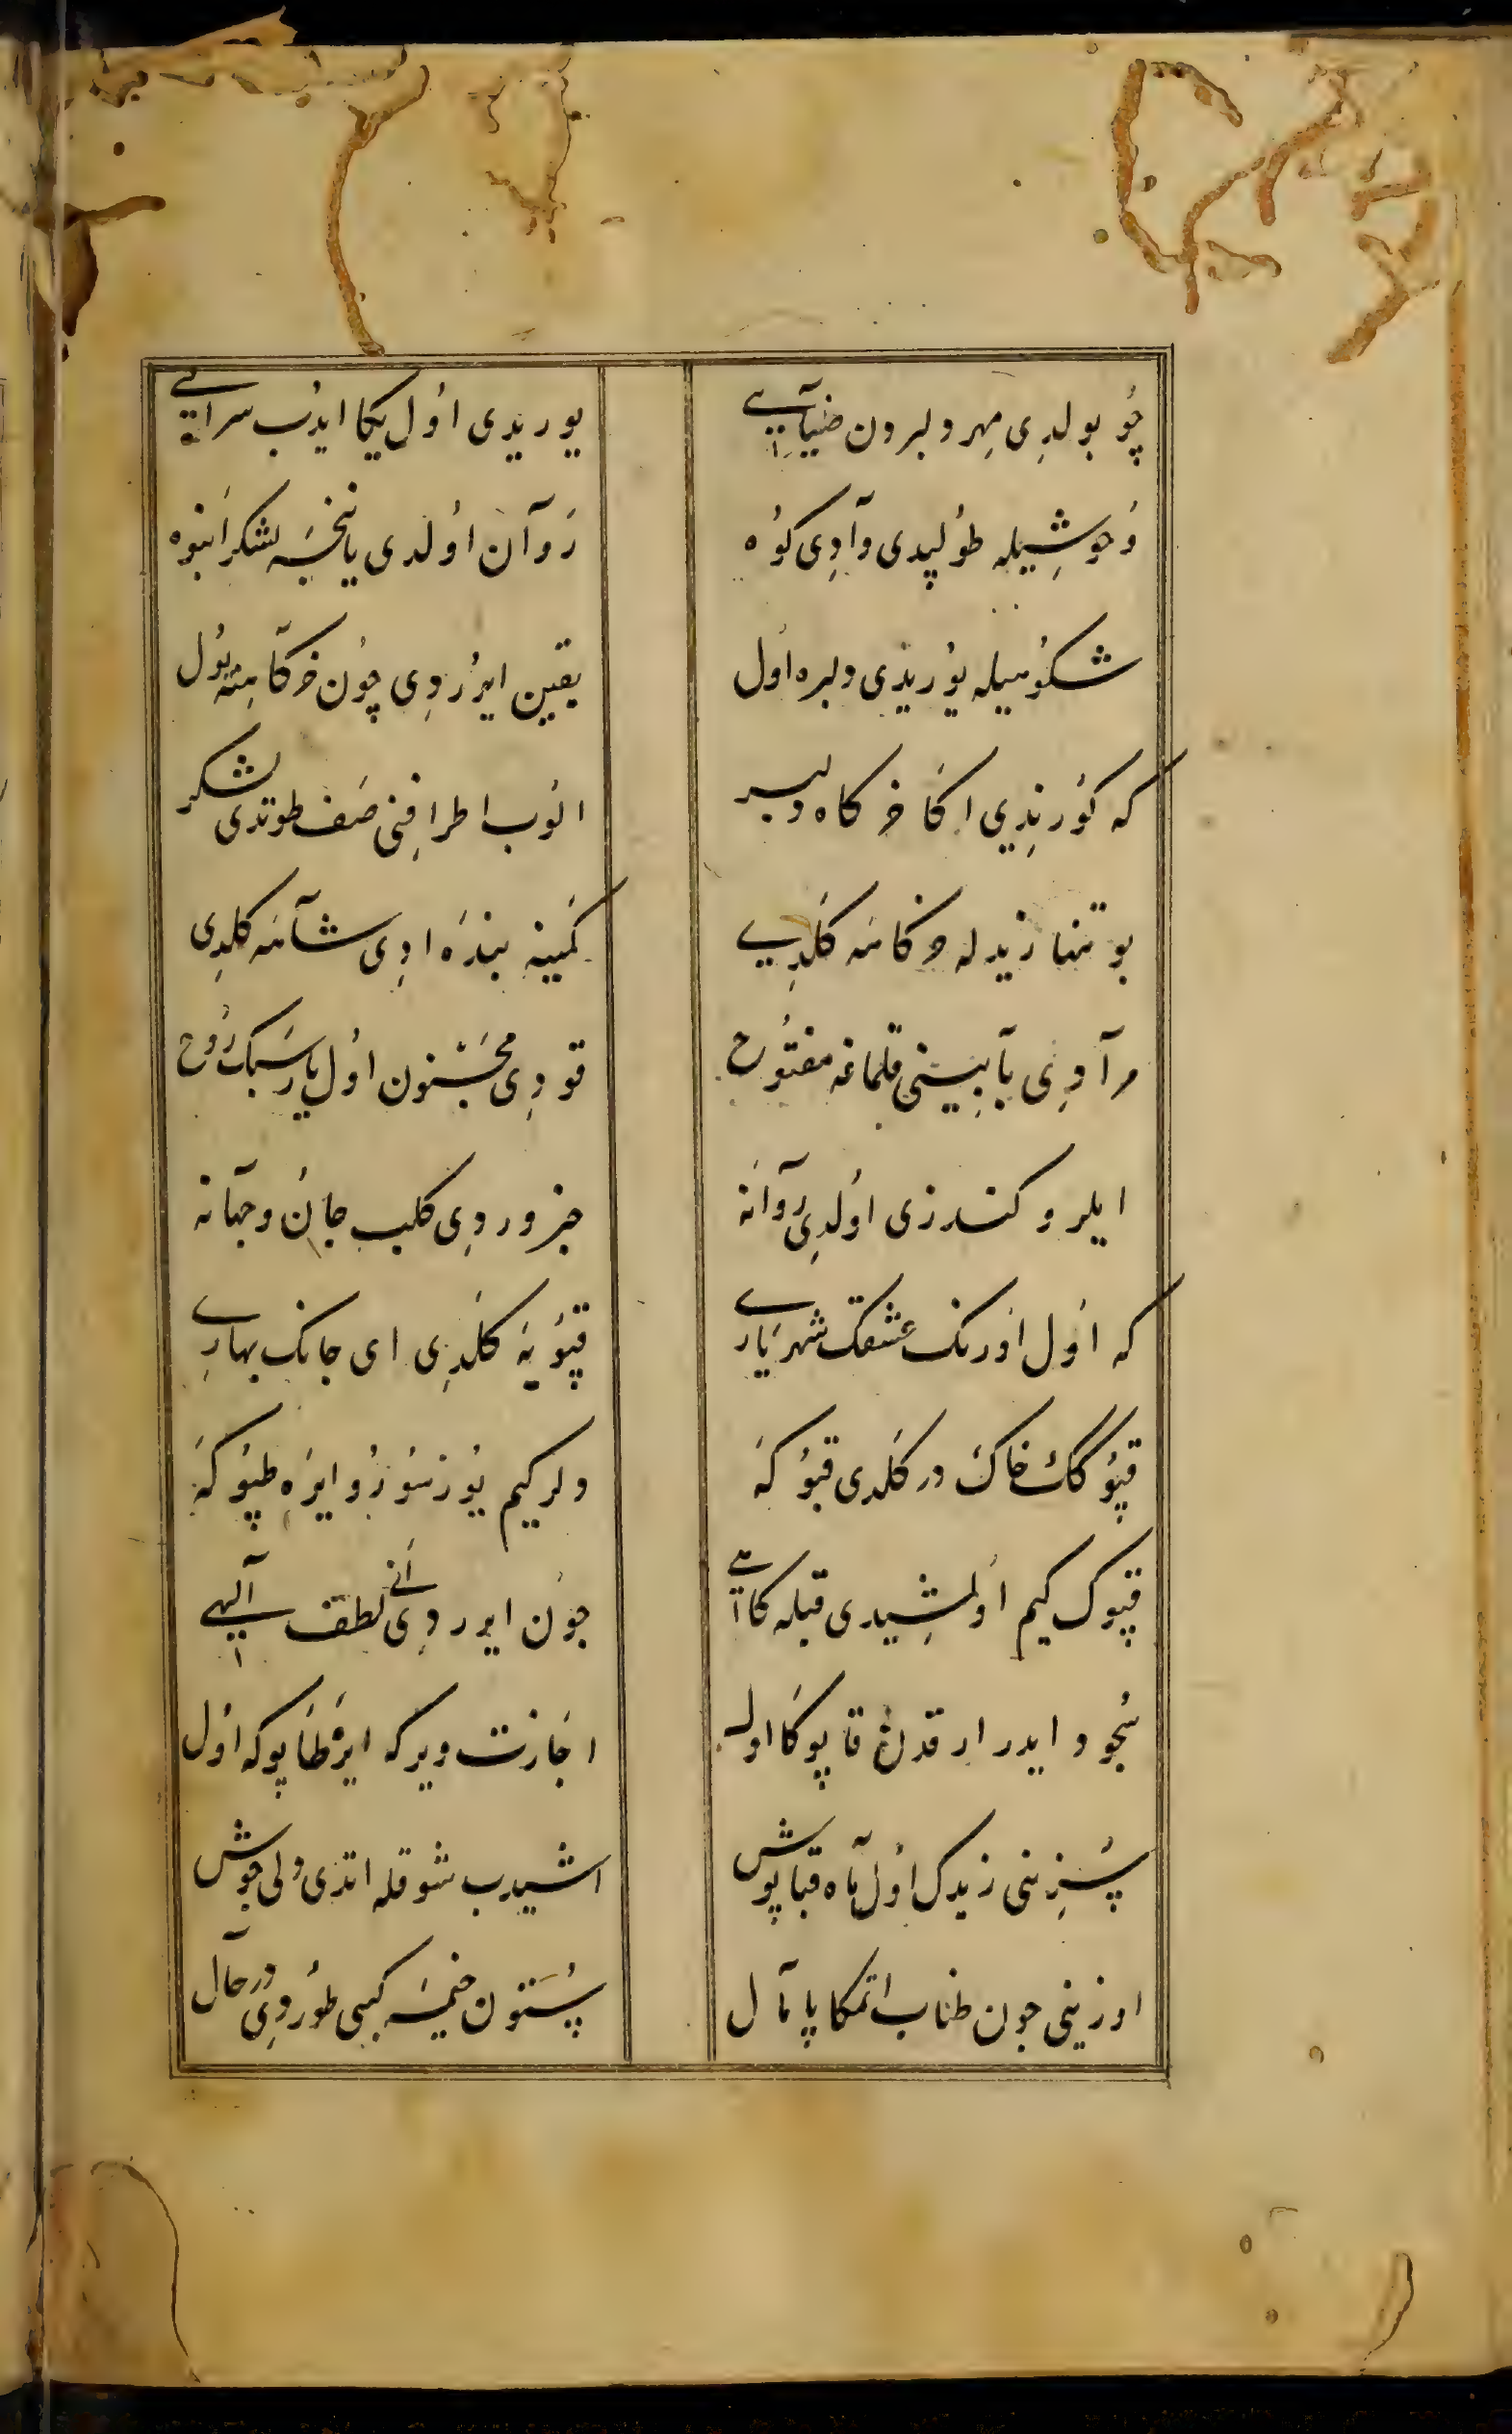 چو بولدی مهر دلبردن ضیایی یوریدی اول یکا ایدب سرایی
وحوشیله طولیدی وادی کوه روان اولدی یا نخسه لشکر انبوه
شکوهیله یوریدی دلبره اول یقین ایرردی چون خرکاهنه یول
که کورندی اکا خرکاه دلبر الوب اطرافنی صف طوتدی لشکر
بو تنها زیدله خرکاهه کلدی کمینه بنده ادی شاهه کلدی
مرادی بابینی قلماغه مفتوح قودی مجنون اول یار سبک روح
ایلرو کندزی اولدی روانه خبر وردی کلب جان و جهانه
که اول اورنک عشقک شهریاری قپویه کلدی ای جانک بهاری
قپوکک خاک در کلدی قپوکه دلر کیم یوز سوزو ایره طپوکه
قپوک کیم اولمشیدی قبله کاهی چون ایردردی انی لطف الهی
نجودایدر ار قدن قاپوکا اول اجازت ویر که ایره طاپوکه اول
سزنی زیدک اول ماه قباپوش اشیدب شوقله اتدی ولی جوش
اوزینی چون طناب اتمکا پامال ستون خیمه کبی طوردی در حال